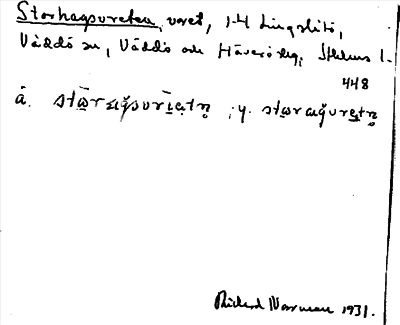 Storhagsvreten, vret, 1-4 Lingslätö,
Väddö sn, Väddö och Häverö skg, Sthlms l.
448
ä. stω̄raǥsvrīetn̥ ; y. stωraǥvretn̥
Rickard Norrman 1931.